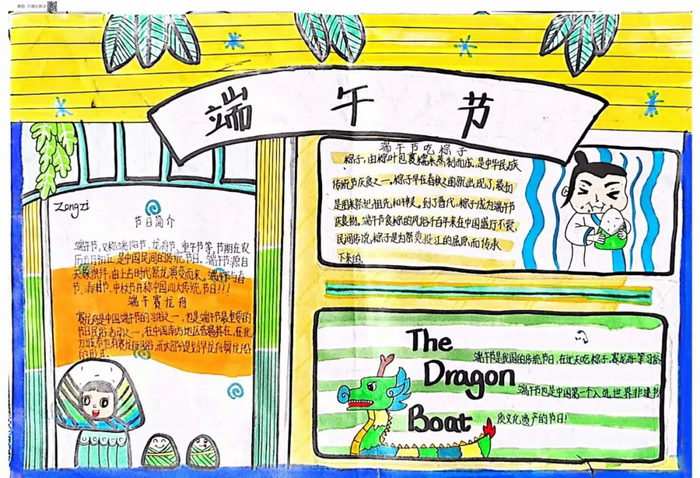 端午节
Zongzi
节日简介
端午节,又称端阳节、龙舟节、重午节等,节期在农
历五月初五,是中国民间的传统节日。端午节源自
天象崇拜,由上古时代祭龙演变而来。端午节与春
节、清明节、中秋节并称中国四大传统节日!!!
端午赛龙舟
赛龙舟是中国端午节的习俗之一,也是端午节最重要的
节日民俗活动之一,在中国南方地区普遍存在,在北
端午节吃粽子
粽子,由粽叶包裹糯米蒸制而成,是中华民族
传统节庆食物之一。粽子早在春秋之前就已出现,最初
是用来祭祀祖先和神灵。到了晋代,粽子成为端午节
庆食物。端午食粽的风俗,千百年来在中国盛行不衰,
民间传说,粽子是为祭奠投江的屈原而传承
下来的。
The
Dragon
Boat
端午节是我国的传统节日,在这天吃粽子、赛龙舟等习俗
端午节也是中国第一个入选世界非遗
质文化遗产的节日!